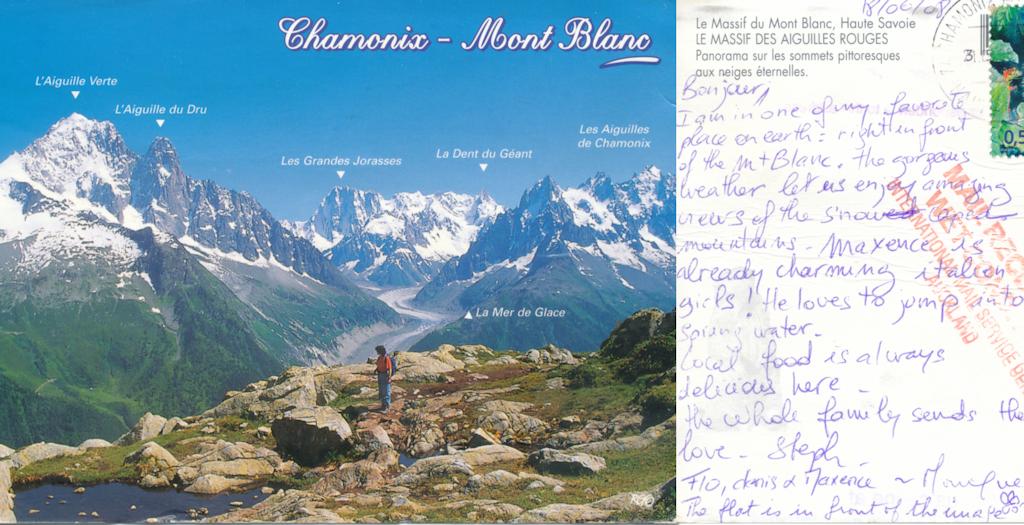 Chamonix - Mont Blanc
L'Aiguille Verte
L'Aiguille du Dru
Les Grandes Jorasses
La Dent du Géant
Les Aiguilles
de Chamonix
La Mer de Glace
Le Massif du Mont Blanc, Haute Savoie
LE MASSIF DES AIGUILLES ROUGES
Panorama sur les sommets pittoresques
aux neiges éternelles.
CHAMONI
0,5
Bonjour,
I am in one of my favorite
place on earth: right in front
of the Mt Blanc. The gorgeous
weather let us enjoy amazing
views of the snow
mountains. Maxence is
already charming italien
girls! He loves to jump into
spring water.
Local food is always
delicious here -
the whole family sends the
love - Steph
Flo, & Maxence ~ Monique
The flat is in front of the image